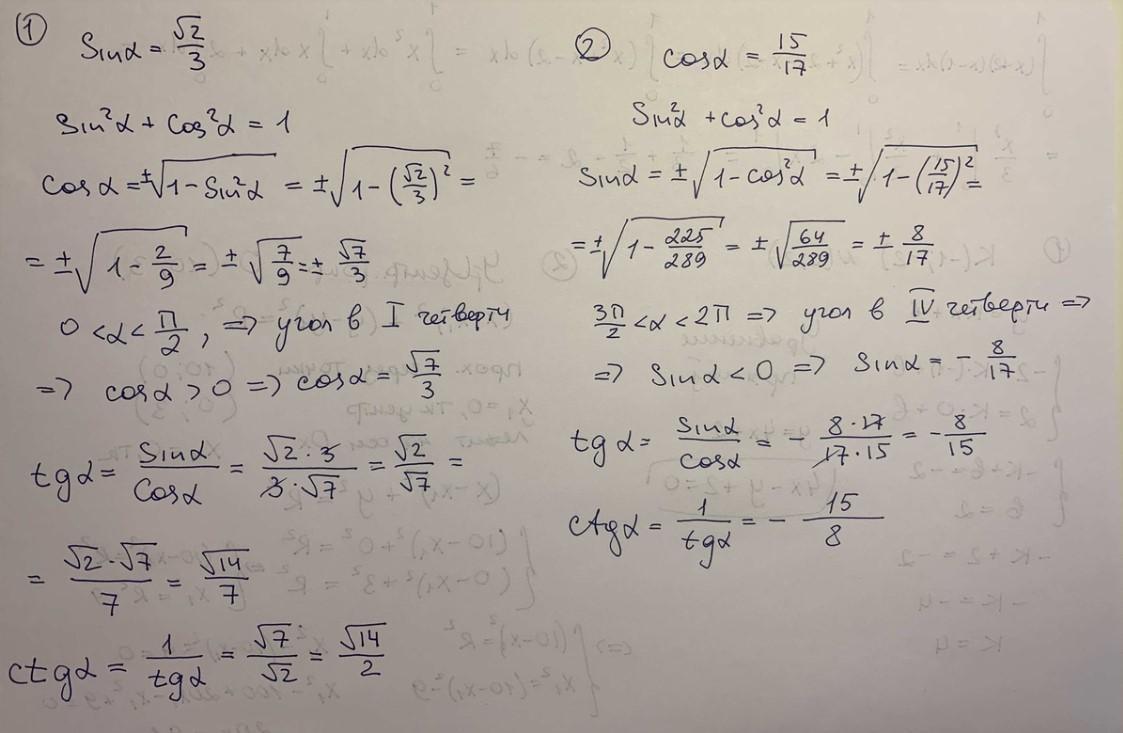 ①
sinα = √2/3
sin²α + cos²α = 1
cosα = ±√(1 − sin²α) = ±√(1 − (√2/3)²) =
= ±√(1 − 2/9) = ±√(7/9) = ± √7/3
0 < α < π/2, => угол в I четверти
=> cosα > 0 => cosα = √7/3
tgα = sinα/cosα = √2·3/3·√7 = √2/√7 =
= √2·√7/7 = √14/7
ctgα = 1/tgα = √7/√2 = √14/2
②
cosα = 15/17
sin²α + cos²α = 1
sinα = ±√(1 − cos²α) = ±√(1 − (15/17)²) =
= ±√(1 − 225/289) = ±√(64/289) = ± 8/17
3π/2 < α < 2π => угол в IV четверти =>
=> sinα < 0 => sinα = − 8/17
tgα = sinα/cosα = − 8·17/17·15 = − 8/15
ctgα = 1/tgα = − 15/8